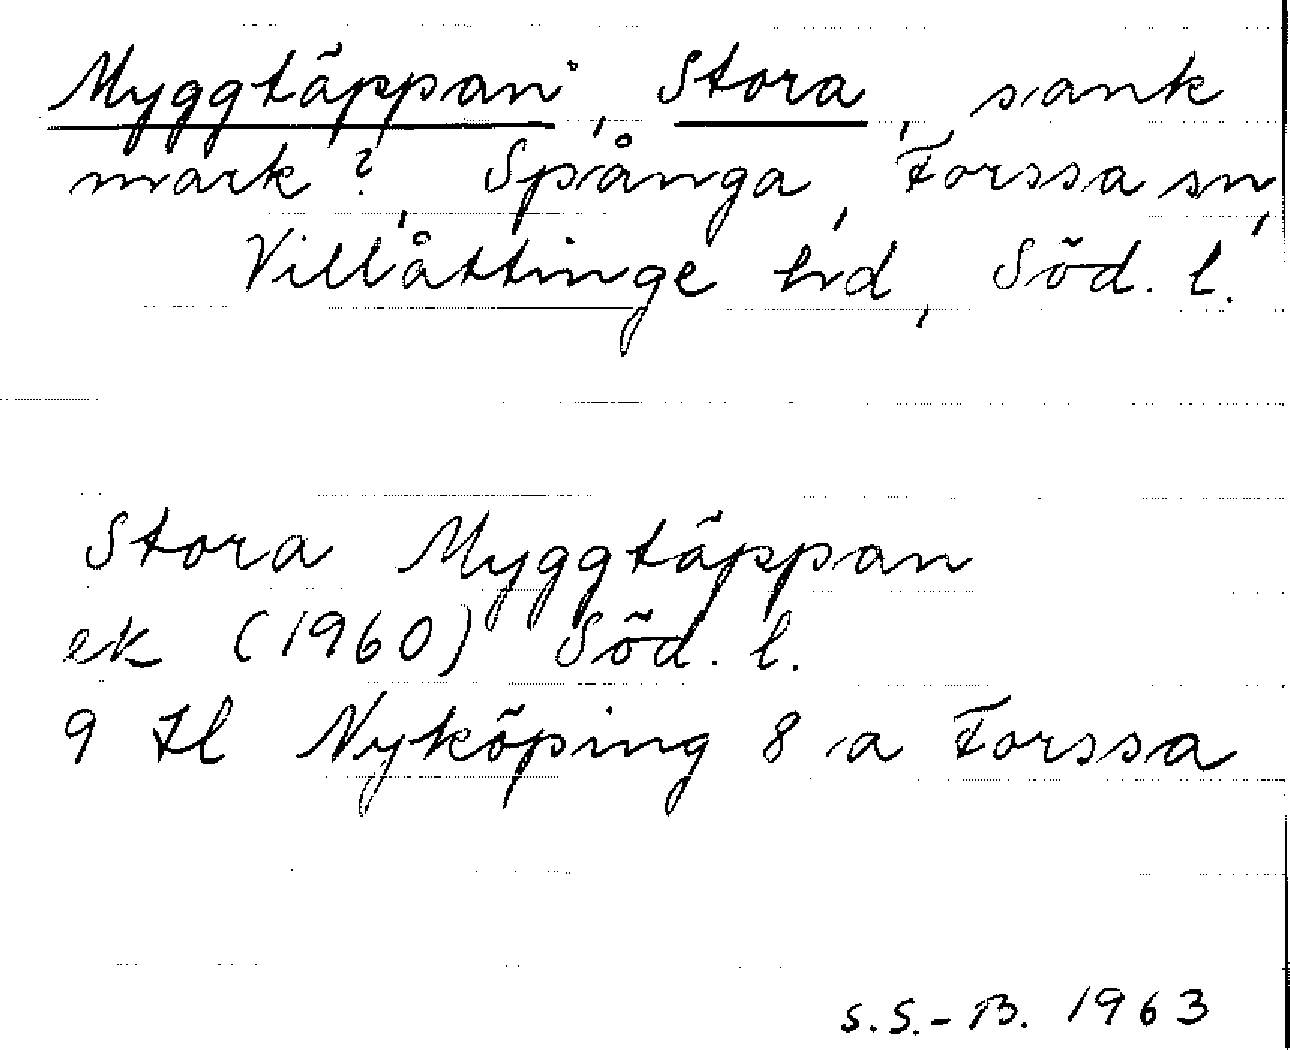 Myggtäppan, Stora, sank
mark?, Spånga, Forssa sn,
Villåttinge hd, Söd. l.
Stora Myggtäppan
ek (1960) Söd. l.
9 Hl Nyköping 8 a Forssa
S.S.-B. 1963